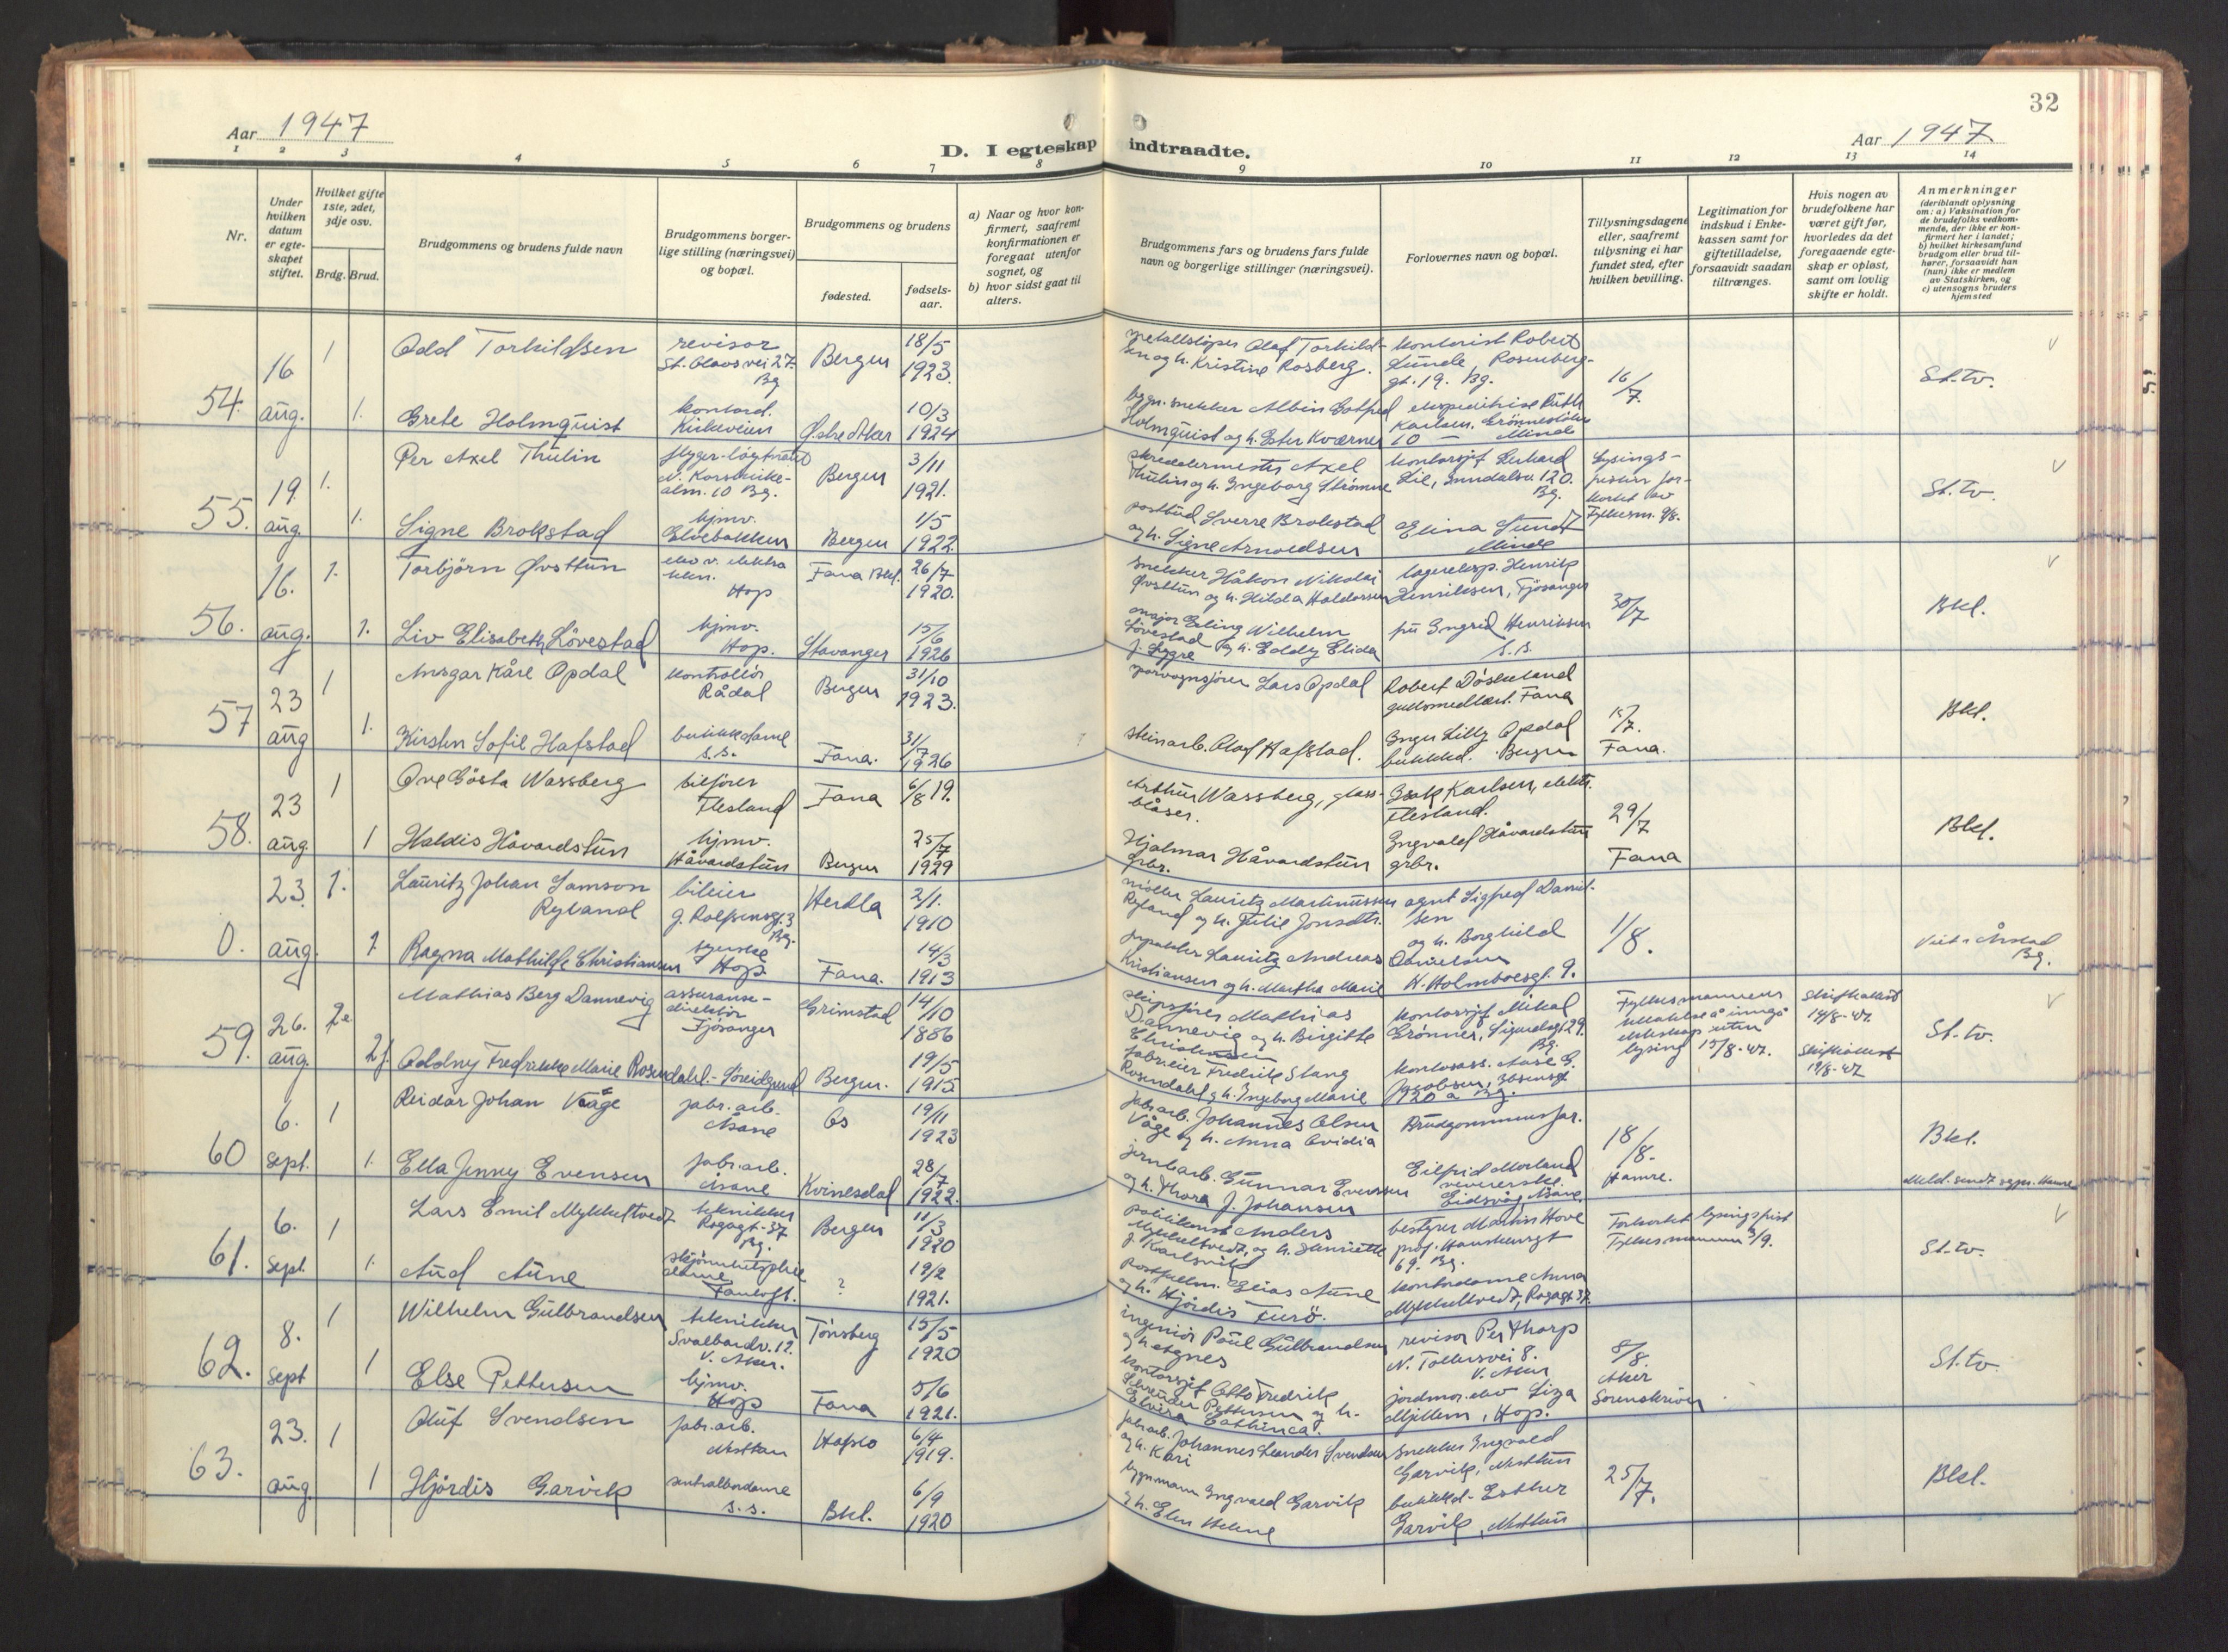 32
Aar 1947
D. I egteskap indtraadte.
Aar 1947
1 2 3 4 5 6 7 8 9 10 11 12 13 14
Nr.
Under hvilken datum er egteskapet stiftet.
Hvilket gifte 1ste, 2det, 3dje osv.
Brdg. Brud.
Brudgommens og brudens fulde navn
Brudgommens borgerlige stilling (næringsvei) og bopæl.
Brudgommens og brudens
fødested.
fødselsaar.
a) Naar og hvor konfirmert, saafremt konfirmationen er foregaat utenfor sognet, og
b) hvor sidst gaat til alters.
Brudgommens fars og brudens fars fulde navn og borgerlige stillinger (næringsvei).
Forlovernes navn og bopæl.
Tillysningsdagene eller, saafremt tillysning ei har fundet sted, efter hvilken bevilling.
Legitimation for indskud i Enkekassen samt for giftetilladelse, forsaavidt saadan tiltrænges.
Hvis nogen av brudefolkene har været gift før, hvorledes da det foregaaende egteskap er opløst, samt om lovlig skifte er holdt.
Anmerkninger
(deriblandt oplysning om: a) Vaksination for de brudefolks vedkommende, der ikke er konfirmert her i landet; b) hvilket kirkesamfund brudgom eller brud tilhører, forsaavidt han (hun) ikke er medlem av Statskirken, og c) utensogns bruders hjemsted
54. 16 aug. 1 Odd Torkildsen revisor St. Olavs vei 27. Bg Bergen 18/5 1923. metallstøper Olaf Torkildsen og h. Kristine Rosberg. kontorist Robert Lunde Rosenberggt. 19. Bg. 16/7 St.tv.
1. Grete Holmquist kontord. Kirkeveien Østre Aker 10/3 1924 bygn. snekker Albin Gotfred Holmquist og h. Ester Kværner Karlsen, 10 – Minde
55. 19. aug. 1. Per Axel Thulin flyger-løytnant 10 Bg. Bergen 3/11 1921. skreddermester Axel Thulin og h. Ingeborg Strømme kontorsjef Gerhard Lie, 120. Bg. Lysings-fristen forkortet av Fylkesm. 9/8. St.tv.
1. Signe Brokstad hjmv. Elvebakken Bergen 1/5 1922 postbud Sverre Brokstad og h. Signe Arnoldsen Elina Lund Minde
56. 16. aug. 1. Torbjörn Øvsttun Hop Fana Bkl. 26/7 1920. snekker Håkon Nikolai Øvsttun og h. Hilda Haldorsen lagereksp. Henrik Henriksen, Fjösanger 30/7 Bkl.
1. Liv Elisabeth Lövestad hjmv. Hop. Stavanger 15/6 1926 major Erling Wilhelm Lövestad og h. Eddy Elida f. Lygre fru Ingrid Henriksen s.s.
57 23 aug 1 Ansgar Kåre Opdal kontrollör Rådal Bergen 31/10 1923. sporvognsfører Lars Opdal Robert Døskeland Fana 15/7. Fana. Bkl.
1. Kirsten Sofie Hafstad butikkdame s.s. Fana. 31/7 1926 steinarb. Olaf Hafstad. Inger Lilly Opdal butikkd. Bergen
58. 23 aug. 1 Ove Gösta Wassberg bilfører Flesland Fana 6/8 19. Arthur Wassberg, glassblåser. Isak Karlsen, elektr. Flesland. 29/7 Fana Bkl.
1 Haldis Håvardstun hjmv. Håvardstun Bergen 25/7 1929 Hjalmar Håvardstun gbr. Ingvald Håvardstun gbr.
0. 23. aug. 1. Lauritz Johan Samson Ryland bileier J. Rolfsensgt. 3 Bg. Herdla 2/1. 1910 møller Lauritz Martinussen Ryland og h. Julie Jonsdtr. agent Sigfred Danielsen 1/8. Viet i Årstad Bg.
1 Ragna Mathilde Christiansen syerske Hop. Fana. 14/3 1913 Lauritz Andreas Kristiansen og h. Martha Marie og h. Borghild Danielsen W. Holmboesgt. 9.
59. 26. aug. 2. Mathias Berg Dannevig assuranse-direktør Fjösanger Grimstad 14/10 1886 skipsfører Mathias Dannevig og h. Birgitte Christensen kontorsjef Mikal Grönner, Sigurdsgt 29. Bg. Fylkesmannens tillatelse å inngå ekteskap uten lysing 15/8-47. Skifteattest 14/8-47. St.tv.
2 f. Oddny Fredrikke Marie Rosendahl-Söreidgrend Bergen. 19/5 1915 fabreier Fredrik Stang Rosendahl og h. Ingeborg Marie kontorass. Aase G. Jacobsen, Ibsensgt 120 a Bg. Skifteattest 19/8-47
60 6. sept. 1 Reidar Johan Våge fabr. arb. Åsane Os 19/11 1923 fabr.arb. Johannes Olsen Våge og h. Anna Ovidia Brudgommens far. 18/8. Hamre. Bkl.
1. Ella Jenny Evensen fabr. arb. Åsane Kvinesdal 28/7 1922. jernbarb. Gunnar Evensen og h. Thora J. Johansen Eilfrid Morland Eidsvåg Åsane. Meld. sendt sogn. Hamre
61. 6. sept. 1 Lars Emil Mykkeltvedt tekniker Rogagt. 37 Bg. Bergen 11/3 1920 politikonst. Anders Mykkeltvedt, og h. Henriette f. Karlsvik bestyrer Martin Hove prof. Hansteensgt 69. Bg. Forkortet lysingsfrist Fylkesmannen 3/9. St.tv.
1. Aud Aune skjönnhetspleie dame Fantoft. ? 19/2 1921. postfullm. Elias Aune og h. Hjördis Furö. kontordame Anna Mykkeltvedt, Rogagt 37.
62. 8. sept 1 Wilhelm Gulbrandsen tekniker Svalbardv. 12. V. Aker. Tönsberg 15/5 1920 ingeniör Paul Gulbrandsen og h. Agnes revisor Per Thorp N. Tollersvei 8. V. Aker 8/8. Aker Sorenskriver St.tv.
1 Else Pettersen hjmv. Hop Fana 5/6 1921. kontorsjef Otto Fredrik Pettersen og h. Elvira Cathinca. jordmor Liza Mjellem, Hop.
63. 23. aug. 1 Oluf Svendsen fabr. arb. Nesttun Hafslo 6/4 1919. fabr.arb. Johannes Leander Svendsen og h. Kari snekker Ingvald Garvik, Nesttun 25/7. Bkl.
1 Hjördis Garvik sentralbordame s.s. Bkl. 6/9 1920 Ingvald Garvik og h. Elen Helene butikkd. Esther Garvik, Nesttun